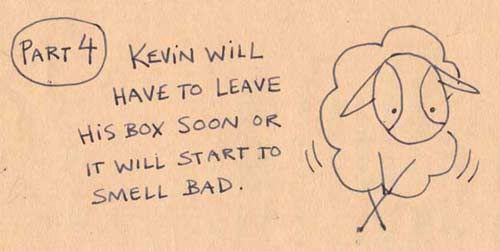 PART 4
KEVIN WILL
HAVE TO LEAVE
HIS BOX SOON OR
IT WILL START TO
SMELL BAD.